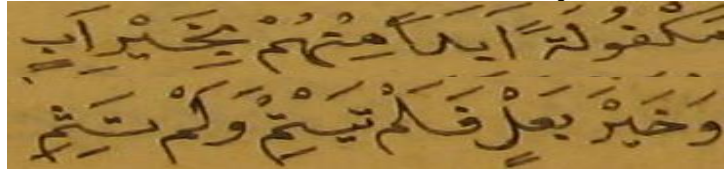 مَكْفُولَةً أَبَدًا مِنْهُمْ بِخَيْرِ أَبٍ
وَخَيْرِ بَعْلٍ فَلَمْ تَيْتَمْ وَلَمْ تَئِمِ